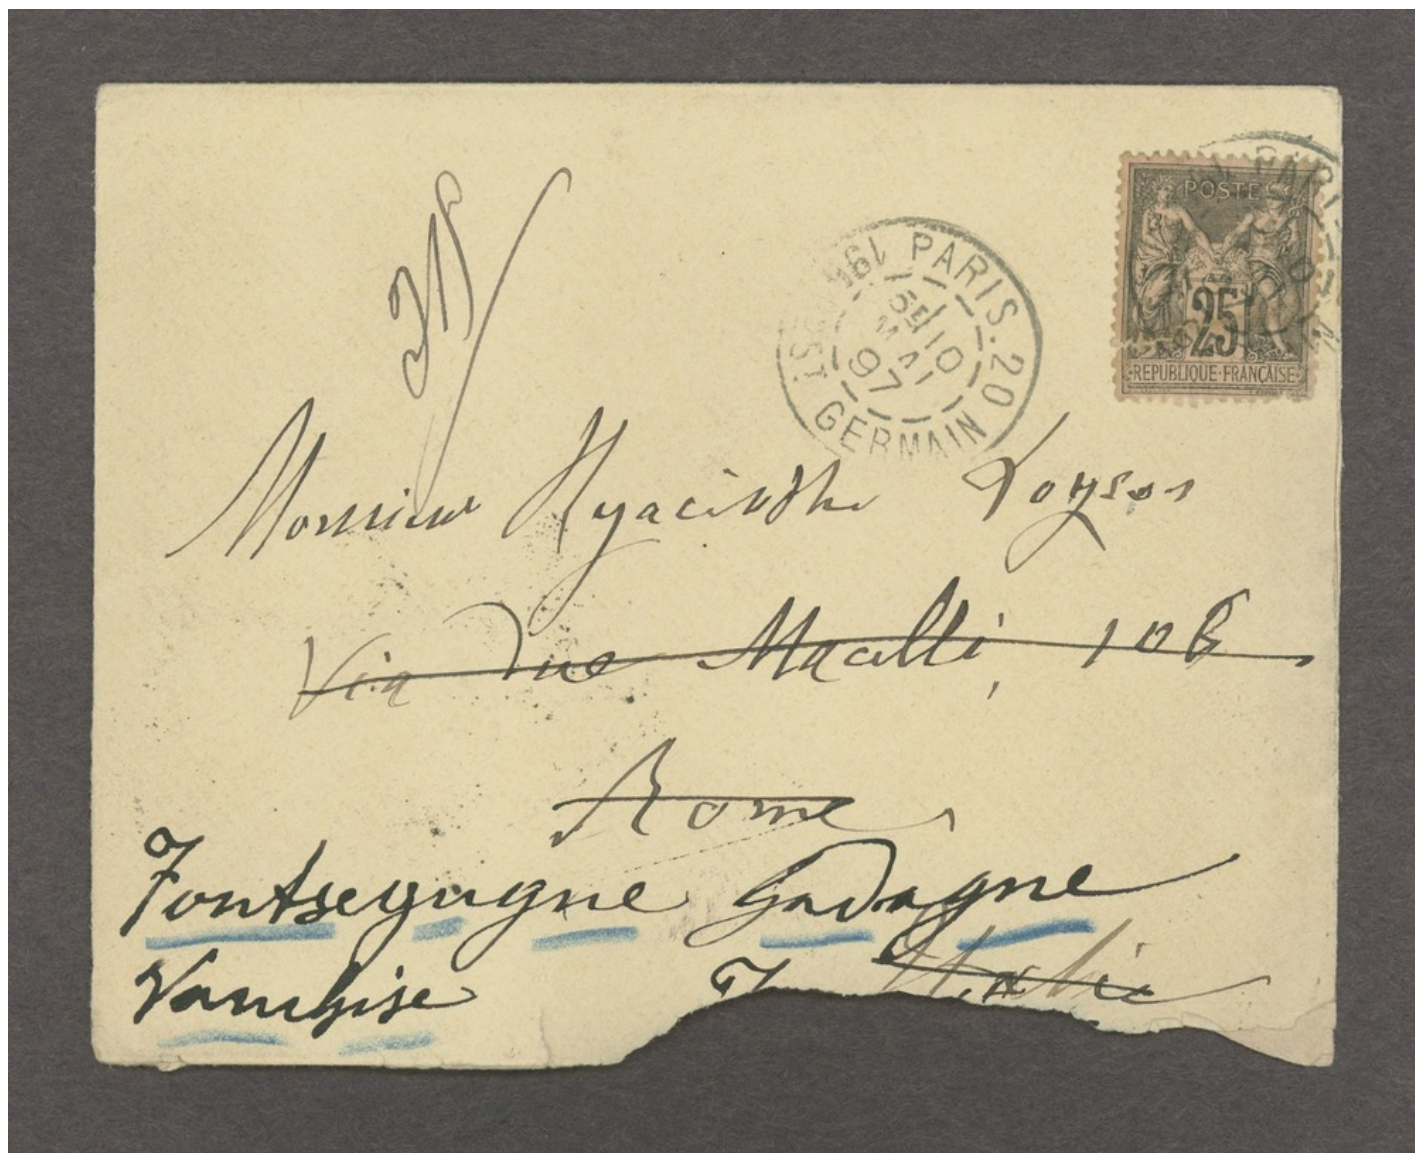 POSTES
25
REPUBLIQUE FRANÇAISE
PARIS
PARIS.20
5E 10
MAI
97
ST GERMAIN
Monsieur Hyacinthe Loyson
Via Due Macelli, 106
Rome
Fontsegugne Gadagne
Italie
Vaucluse